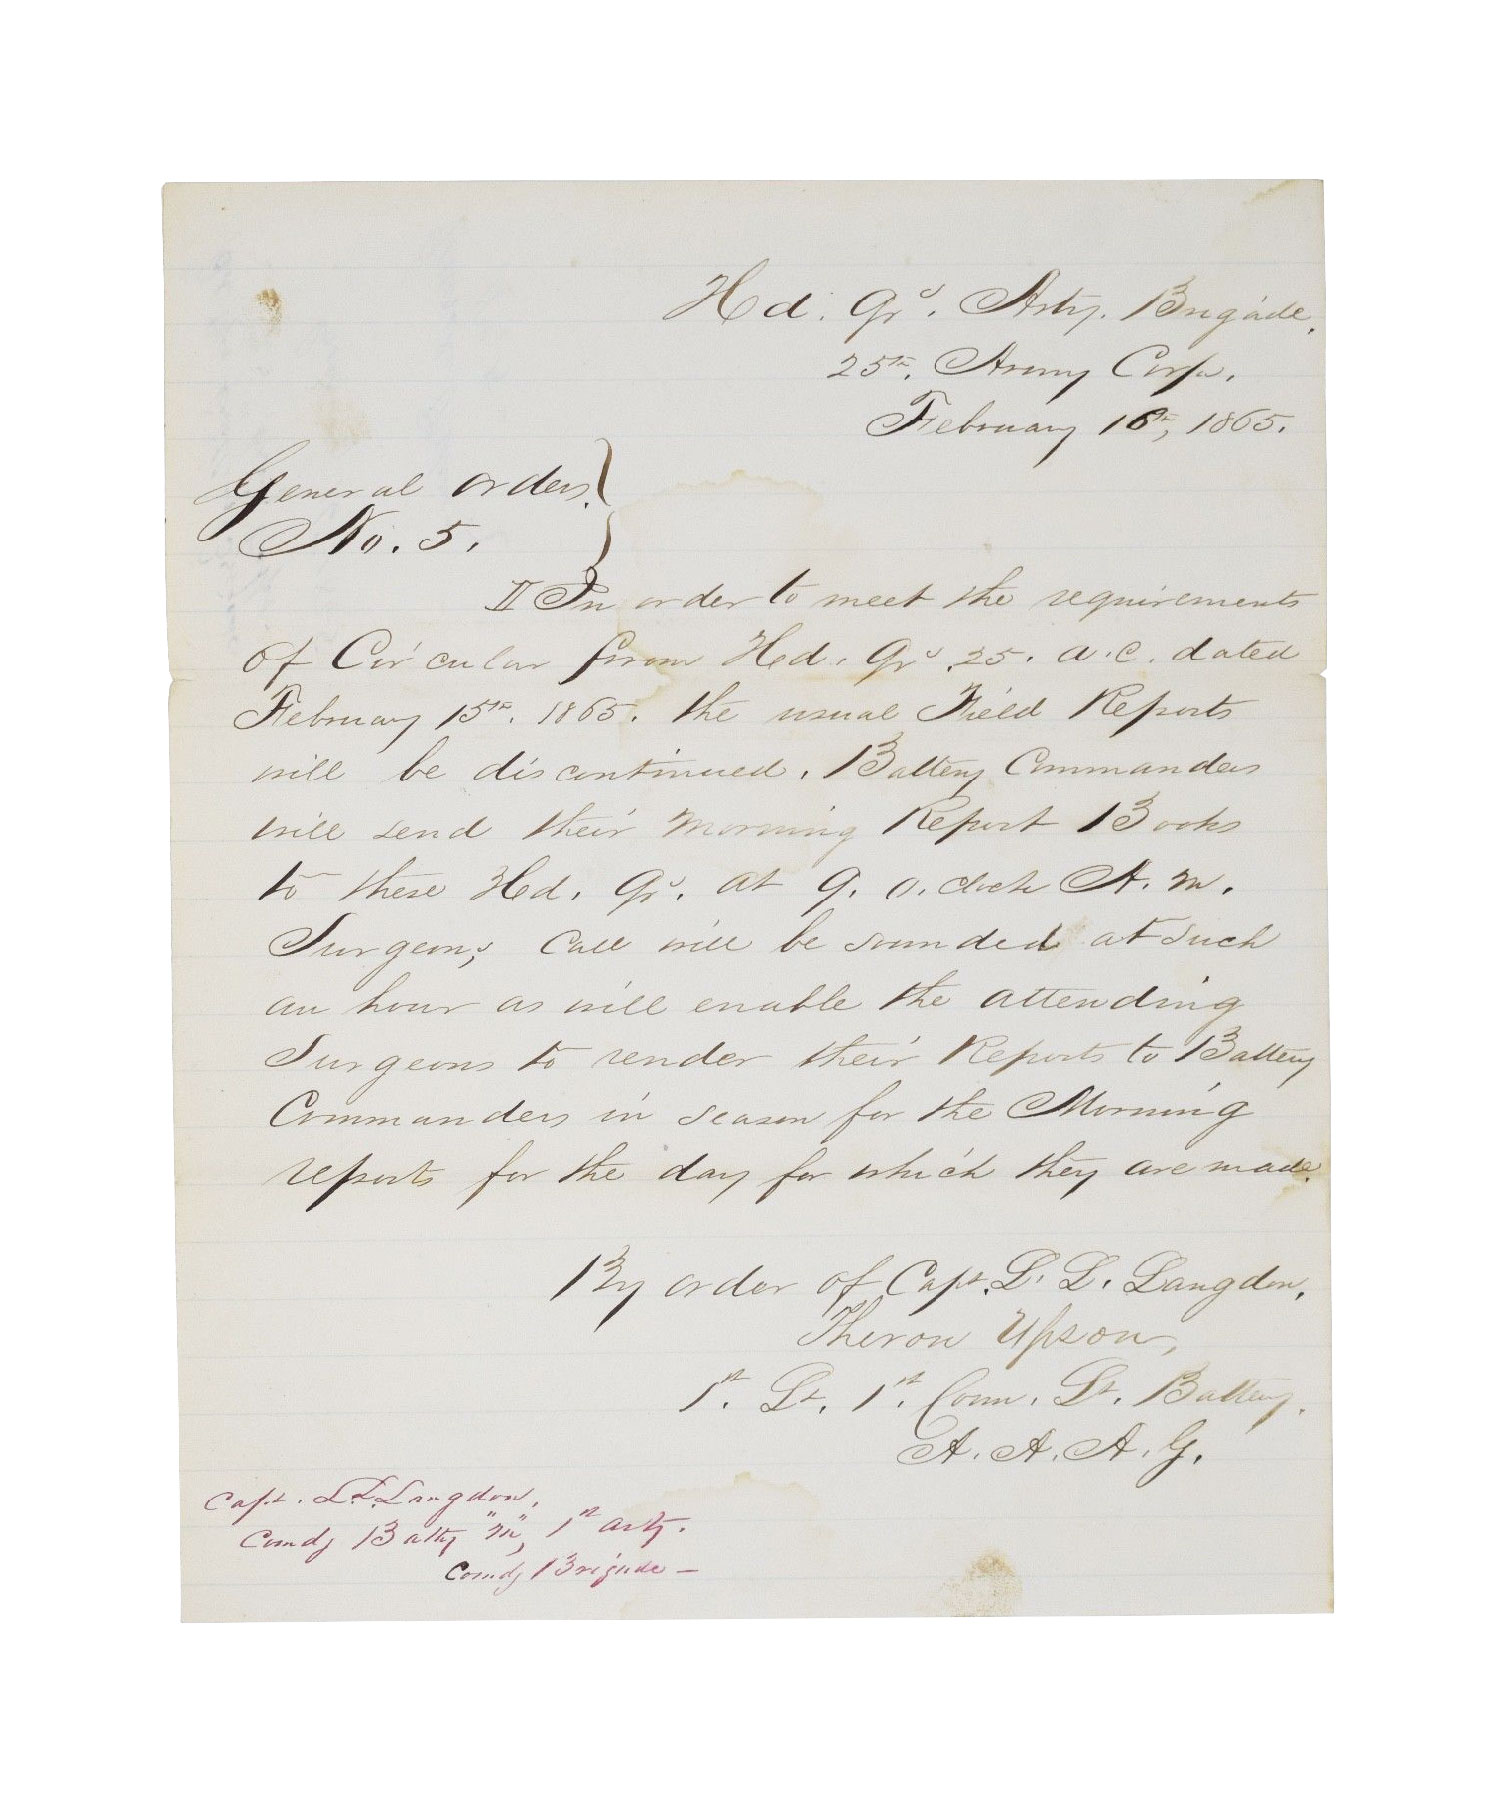 Hd. Qrs. Arty. Brigade,
25th. Army Corps.
February 16th, 1865.
General Orders.
No. 5.
II In order to meet the requirements
of Circular from Hd. Qrs 25. A.C. dated
February 15th. 1865. the usual Field Reports
will be discontinued. Battery Commanders
will send their Morning Report Books
to these Hd. Qrs. at 9. o.clock A.M.
Surgeon,s Call will be sounded at such
an hour as will enable the attending
Surgeons to render their Reports to Battery
Commanders in season for the Morning
reports for the day for which they are made.
By order of Capt. L. L. Langdon,
Theron Upson,
1st. Lt. 1st. Conn. Lt. Battery.
A. A. A. G.
Capt. L.L. Langdon,
Comdg Batty "M", 1st Arty.
Comdg Brigade —